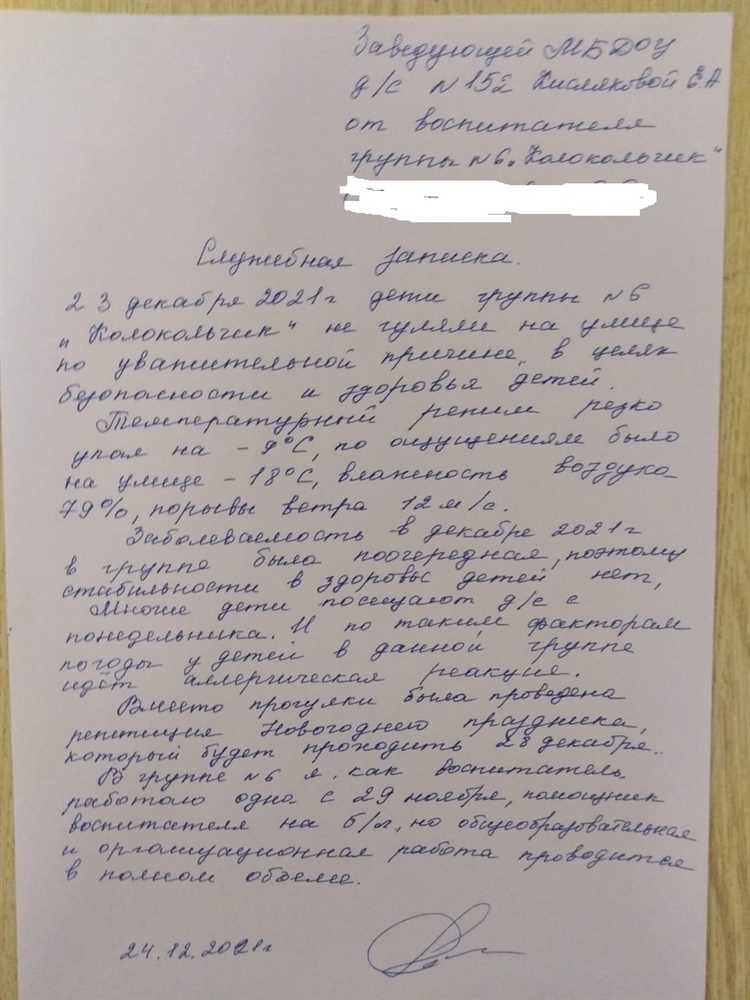 Заведующей МБДОУ
д/с №152 Кисляковой ЕА
от воспитателя
группы №6 „Колокольчик"
Служебная записка.
23 декабря 2021г дети группы №6
„Колокольчик" не гуляли на улице
по уважительной причине, в целях
безопасности и здоровья детей.
Температурный режим резко
упал на -9°С, по ощущениям было
на улице -18°С, влажность воздуха
79%, порывы ветра 12м/с.
Заболеваемость в декабре 2021г
в группе была поочередная, поэтому
стабильности в здоровье детей нет,
Многие дети посещают д/с с
понедельника. И по таким факторам
погоды у детей в данной группе
идёт аллергическая реакция.
Вместо прогулки была проведена
репетиция Новогоднего праздника,
который будет проходить 28 декабря.
В группе №6 я, как воспитатель
работаю одна с 29 ноября, помощник
воспитателя на б/л, но общеобразовательная
и организационная работа проводится
в полном объеме.
24.12.2021г